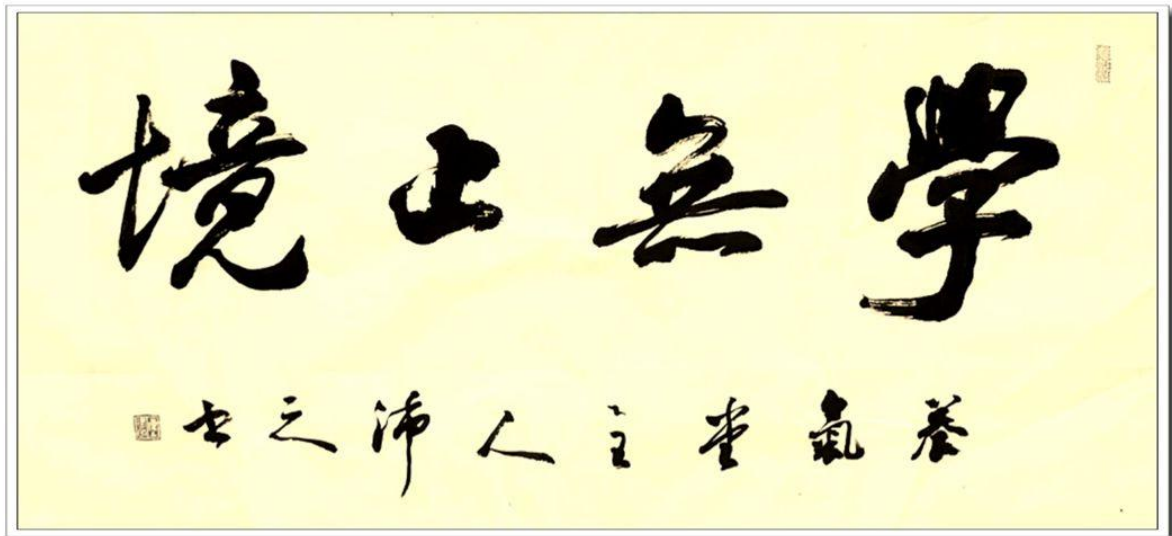 學無止境
養氣堂主人沛之書